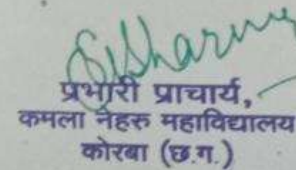 Sharma
प्रभारी प्राचार्य,
कमला नेहरु महाविद्यालय
कोरबा (छ.ग.)